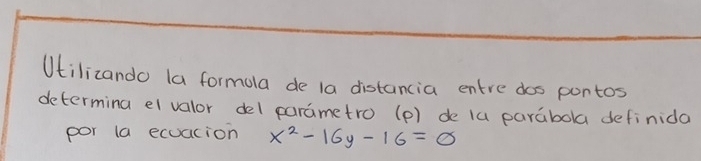 Utilizando la formula de la distancia entre dos pontos
determina el valor del parámetro (p) de la parábola definida
por la ecuación x² - 16y - 16 = 0